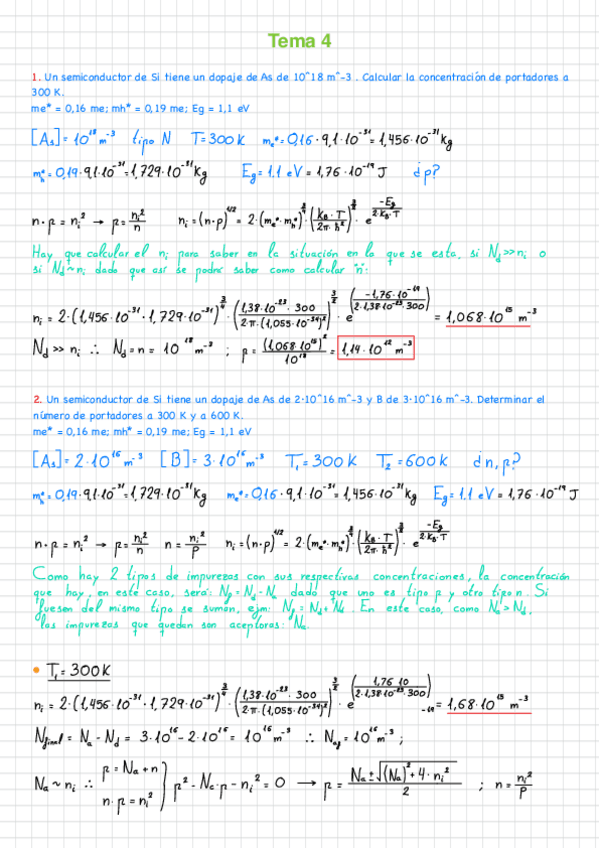 Tema 4
1. Un semiconductor de Si tiene un dopaje de As de 10^18 m^-3 . Calcular la concentración de portadores a
300 K.
me* = 0,16 me; mh* = 0,19 me; Eg = 1,1 eV
[As] = 10¹⁸ m⁻³ tipo N T = 300 K mₑ* = 0,16 · 9,1 · 10⁻³¹ = 1,456 · 10⁻³¹ kg
mₕ* = 0,19 · 9,1 · 10⁻³¹ = 1,729 · 10⁻³¹ kg Eg = 1.1 eV = 1,76 · 10⁻¹⁹ J ¿p?
n · p = nᵢ² → p = nᵢ²/n nᵢ = (n·p)^(1/2) = 2 · (mₑ* · mₕ*)^(3/4) · (k_B · T / 2π · ħ²)^(3/2) · e^(-Eg / 2·k_B·T)
Hay que calcular el nᵢ para saber en la situación en la que se esta, si Nd >> nᵢ o
si Nd ~ nᵢ dado que así se podrá saber como calcular "n":
nᵢ = 2 · (1,456 · 10⁻³¹ · 1,729 · 10⁻³¹)^(3/4) · (1,38 · 10⁻²³ · 300 / 2·π·(1,055·10⁻³⁴)²)^(3/2) · e^(-1,76 · 10⁻¹⁹ / 2·1,38·10⁻²³·300) = 1,068 · 10¹⁵ m⁻³
Nd >> nᵢ ∴ Nd = n = 10¹⁸ m⁻³ ; p = (1,068 · 10¹⁵)² / 10¹⁸ = 1,14 · 10¹² m⁻³
2. Un semiconductor de Si tiene un dopaje de As de 2·10^16 m^-3 y B de 3·10^16 m^-3. Determinar el
número de portadores a 300 K y a 600 K.
me* = 0,16 me; mh* = 0,19 me; Eg = 1,1 eV
[As] = 2 · 10¹⁶ m⁻³ [B] = 3 · 10¹⁶ m⁻³ T₁ = 300 K T₂ = 600 K ¿n, p?
mₕ* = 0,19 · 9,1 · 10⁻³¹ = 1,729 · 10⁻³¹ kg mₑ* = 0,16 · 9,1 · 10⁻³¹ = 1,456 · 10⁻³¹ kg Eg = 1.1 eV = 1,76 · 10⁻¹⁹ J
n · p = nᵢ² → p = nᵢ²/n n = nᵢ²/p nᵢ = (n·p)^(1/2) = 2 · (mₑ* · mₕ*)^(3/4) · (k_B · T / 2π · ħ²)^(3/2) · e^(-Eg / 2·k_B·T)
Como hay 2 tipos de impurezas con sus respectivas concentraciones, la concentración
que hay, en este caso, será: = Nd - Na dado que uno es tipo p y otro tipo n. Si
fuesen del mismo tipo se suman, ejm: = Nd + Nd. En este caso, como Na > Nd,
las impurezas que quedan son aceptoras: Na
• T₁ = 300 K
nᵢ = 2 · (1,456 · 10⁻³¹ · 1,729 · 10⁻³¹)^(3/4) · (1,38 · 10⁻²³ · 300 / 2·π·(1,055·10⁻³⁴)²)^(3/2) · e^(1,76 · 10 / 2·1,38·10⁻²³·300) -19 = 1,68 · 10¹⁵ m⁻³
Nfinal = Na - Nd = 3 · 10¹⁶ - 2 · 10¹⁶ = 10¹⁶ m⁻³ ∴ = 10¹⁶ m⁻³ ;
Na ~ nᵢ ∴ p = Na + n
n · p = nᵢ² } p² - Na · p - nᵢ² = 0 → p = (Na ± √((Na)² + 4 · nᵢ²)) / 2 ; n = nᵢ²/p